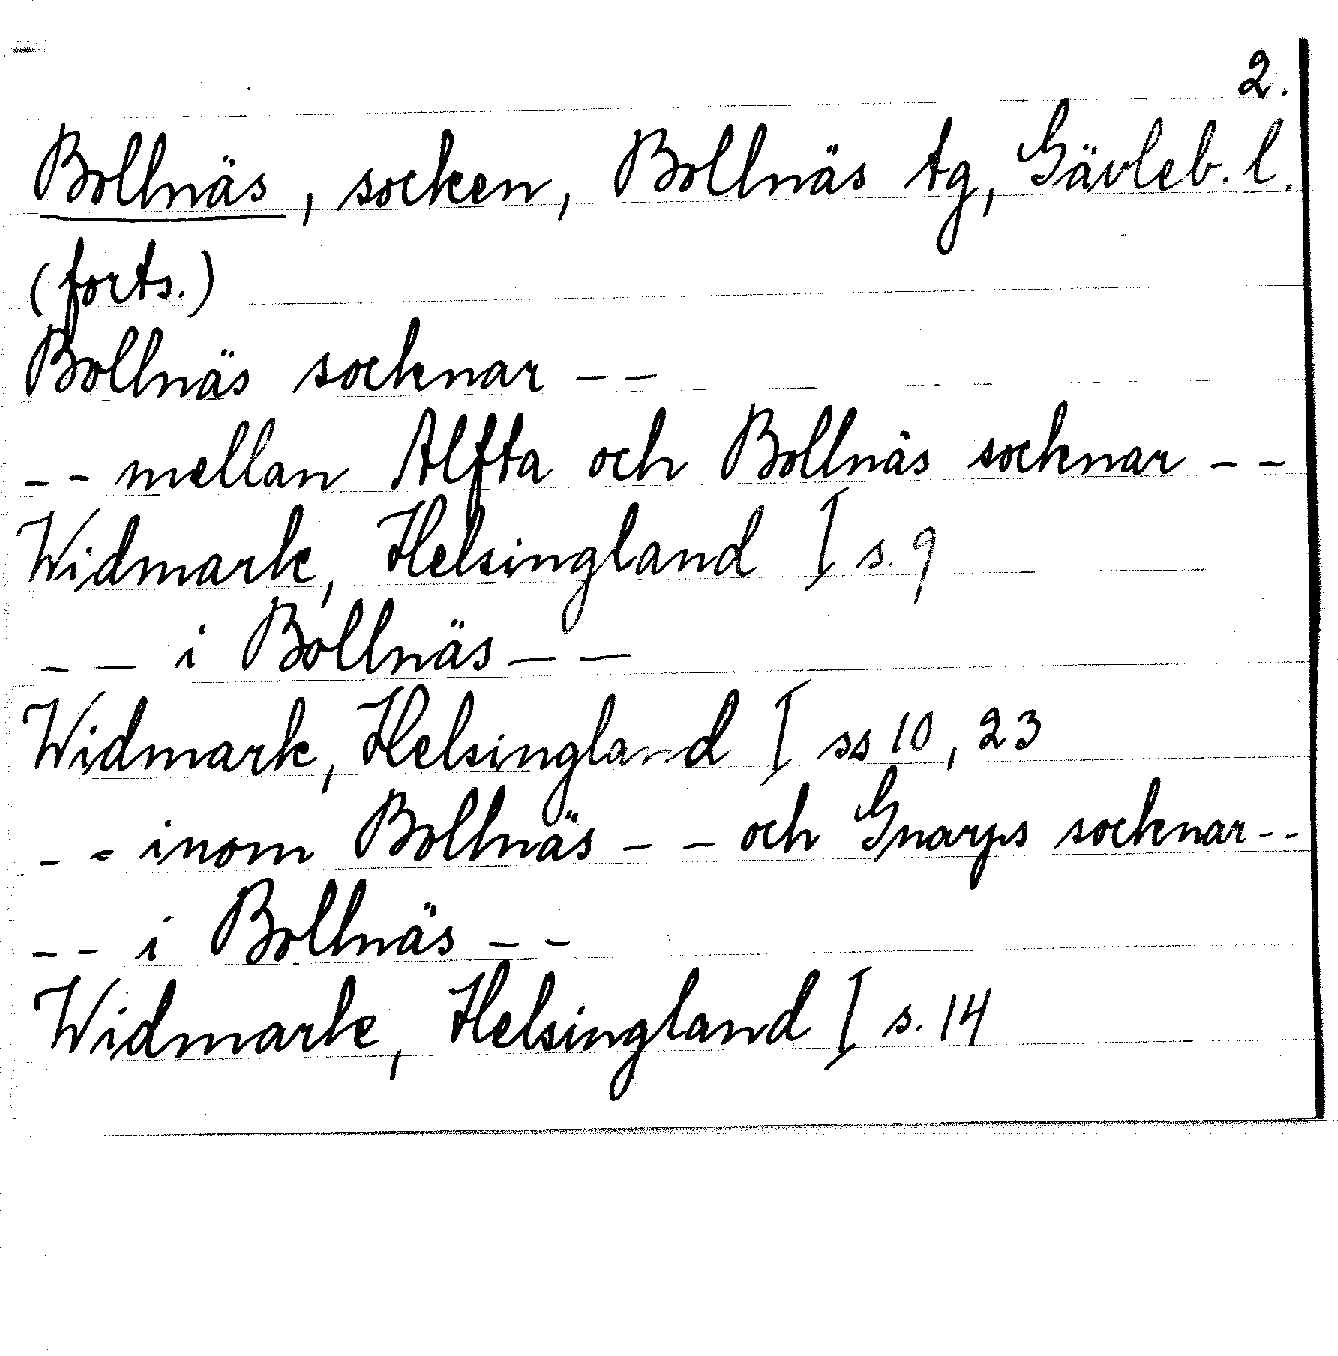 2.
Bollnäs, socken, Bollnäs tg, Gävleb. l.
(forts.)
Bollnäs socknar - -
- - mellan Alfta och Bollnäs socknar - -
Widmark, Helsingland I s. 9
- - i Bollnäs - -
Widmark, Helsingland I ss 10, 23
- - inom Bollnäs - - och Gnarps socknar - -
- - i Bollnäs - -
Widmark, Helsingland I s. 14